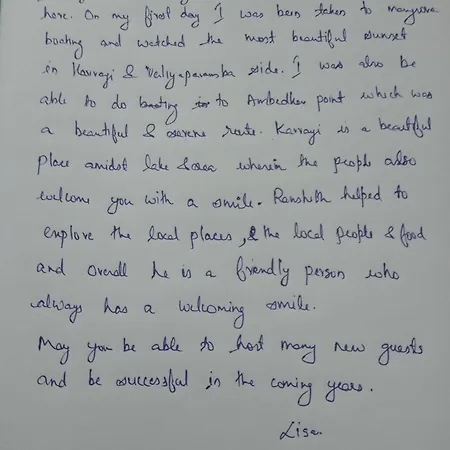 here. On my first day I was been taken to mangrove
boating and watched the most beautiful sunset
in Kavvayi & Valiyaparamba side. I was also be
able to do boating to Ambedkar point which was
a beautiful & serene route. Kavvayi is a beautiful
place amidst lake & sea wherein the people also
welcome you with a smile. Ranshith helped to
explore the local places, & the local people & food
and overall he is a friendly person who
always has a welcoming smile.
May you be able to host many new guests
and be successful in the coming years.
Lisa.